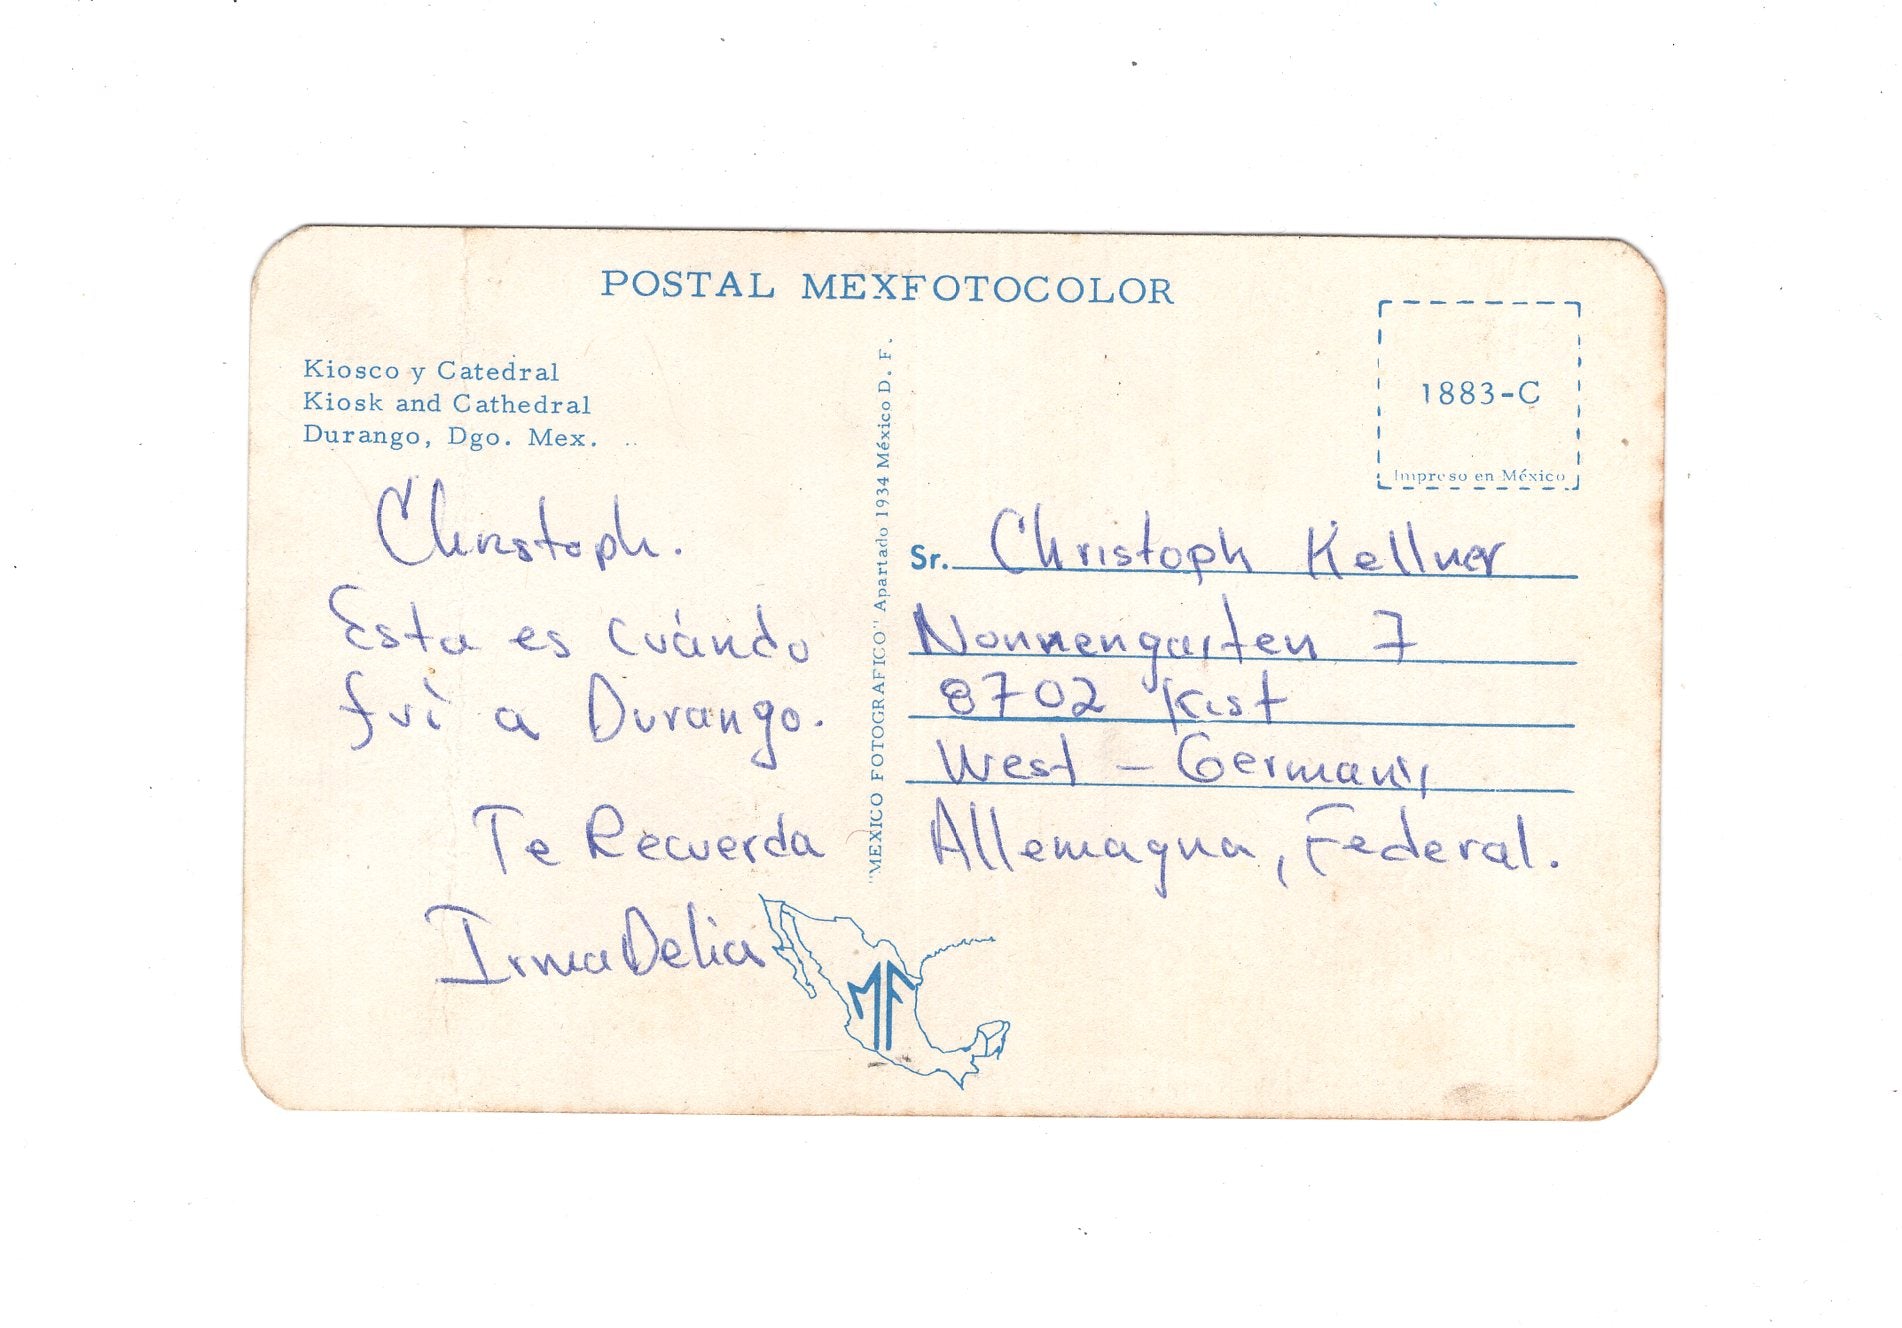 POSTAL MEXFOTOCOLOR
Kiosco y Catedral
Kiosk and Cathedral
Durango, Dgo. Mex.
Christoph.
Esta es cuándo
fuí a Durango.
Te Recuerda
Irma Delia
"MEXICO FOTOGRAFICO" Apartado 1934 México D. F.
1883-C
Impreso en México
Sr. Christoph Kellner
Nonnengarten 7
8702 Kist
West - Germany
Allemagna, Federal.
MF